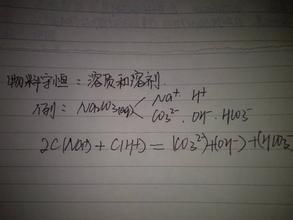 物料守恒：溶质和溶剂.
例：Na₂CO₃(aq) < Na⁺ · H⁺
CO₃²⁻ · OH⁻ · HCO₃⁻
2C(Na⁺) + C(H⁺) = (CO₃²⁻) + (OH⁻) + (HCO₃⁻